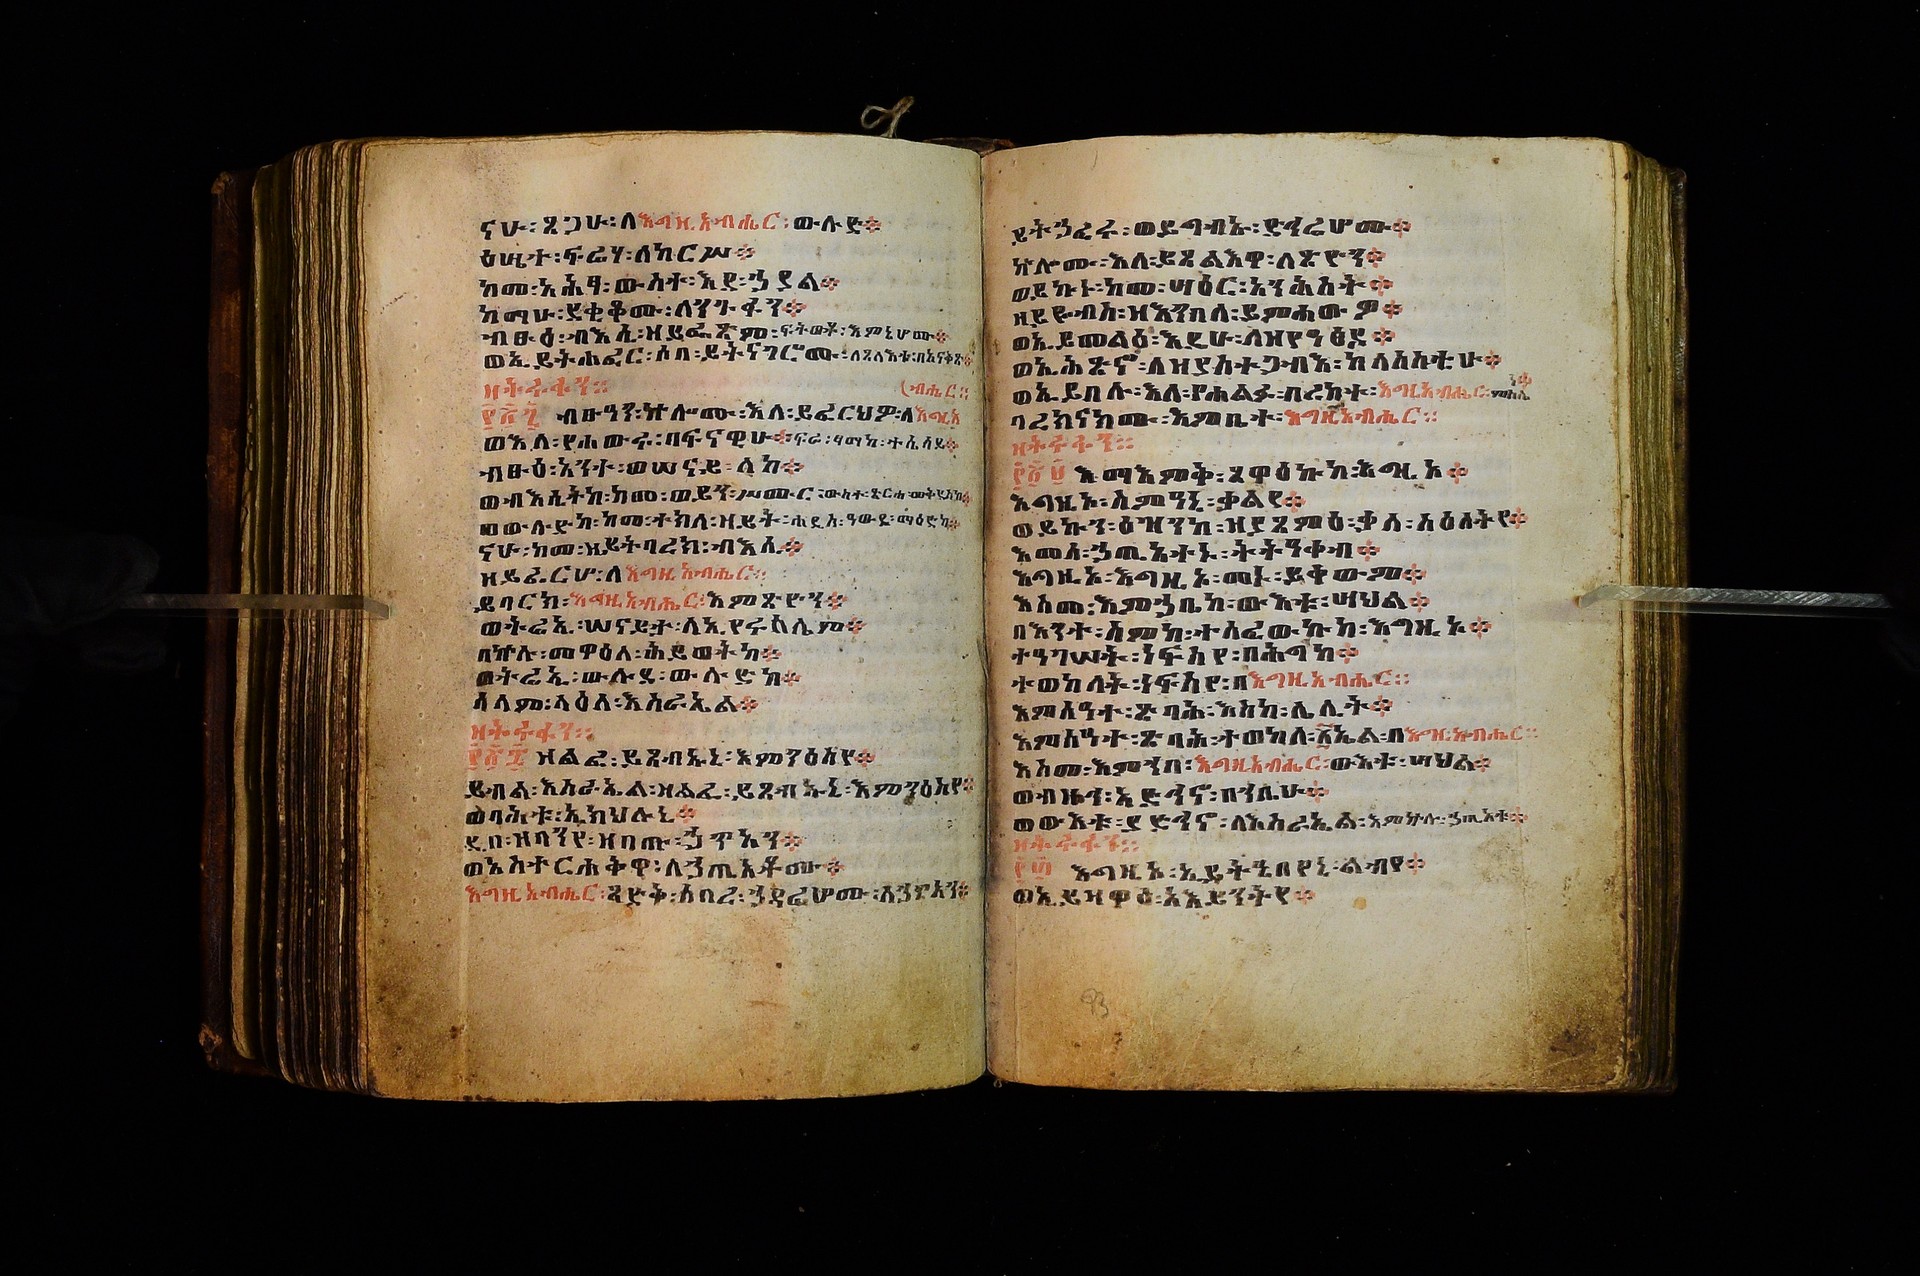 ናሁ፡ ጸጋሁ፡ ለእግዚአብሔር፡ ውሉድ፨
ዕሤተ፡ ፍሬሃ፡ ለከርሥ፨
ከመ፡ አሕፃ፡ ውስተ፡ እደ፡ ኃያል፨
ከማሁ፡ ደቂቆሙ፡ ለንጉፋን፨
ብፁዕ፡ ብእሲ፡ ዘይፌጽም፡ ፍትወቶ፡ እምኔሆሙ፨
ወኢይትኀፈር፡ ሶበ፡ ይትናገሮሙ፡ ለጸላእቱ፡ በአናቅጽ፨
ዘትሩፋን፡፡
(ብሔር፡፡
፻፳፯ ብፁዓን፡ ኵሎሙ፡ እለ፡ ይፈርህዎ፡ ለእግዚአ
ወእለ፡ የሐውሩ፡ በፍናዊሁ፨ ፍሬ፡ ሃማከ፡ ተሴሰይ፨
ብፁዕ፡ አንተ፡ ወሠናይ፡ ለከ፨
ወብእሲትከ፡ ከመ፡ ወይን፡ ሥሙር፡ ውስተ፡ ጽርሐ፡ መቅደስከ፨
ወውሉድከ፡ ከመ፡ ተክለ፡ ዘይት፡ ሐዲስ፡ ዓውደ፡ ማዕድከ፨
ናሁ፡ ከመ፡ ዝይትባረክ፡ ብእሲ፨
ዘይፈርሆ፡ ለእግዚአብሔር፡፡
ይባርክ፡ እግዚአብሔር፡ እምጽዮን፨
ወትሬኢ፡ ሠናይታ፡ ለኢየሩሳሌም፨
በኵሉ፡ መዋዕለ፡ ሕይወትከ፨
ወትሬኢ፡ ውሉደ፡ ውሉድከ፨
ሰላም፡ ላዕለ፡ እስራኤል፨
ዘትሩፋን፡፡
፻፳፰ ዘልፈ፡ ይጸብኡኒ፡ እምንዕስየ፨
ይብል፡ እስራኤል፡ ዘልፈ፡ ይጸብኡኒ፡ እምንዕስየ፨
ወባሕቱ፡ ኢክህሉኒ፨
ዲበ፡ ዘባንየ፡ ዘበጡ፡ ኃጥኣን፨
ወኤስተርሐቅዋ፡ ለኃጢአቶሙ፨
እግዚአብሔር፡ ጻድቅ፡ ሰበረ፡ ኃይሎሙ፡
ይትኃፈሩ፡ ወይግብኡ፡ ድኅሬሆሙ፨
ኵሎሙ፡ እለ፡ ይጸልእዋ፡ ለጽዮን፨
ወይኩኑ፡ ከመ፡ ሣዕር፡ አንሕስት፨
ዘይየብስ፡ ዘእንበለ፡ ይምሐውዎ፨
ወኢይመልዕ፡ እዴሁ፡ ለዘየዓፅድ፨
ወኢሕጽኖ፡ ለዘያስተጋብእ፡ ከላስስቲሁ፨
ወኢይበሉ፡ እለ፡ የሐልፉ፡ በረከተ፡ እግዚአብሔር፡ ምስሌ
ክሙ፨
ባረክናክሙ፡ እምቤተ፡ እግዚአብሔር፡፡
ዘትሩፋን፡፡
፻፳፱ እማእምቅ፡ ጸዋዕኩከ፡ እግዚኦ፨
እግዚኦ፡ ስምዓኒ፡ ቃልየ፨
ወይኩን፡ ዕዝንከ፡ ዘያጸምዕ፡ ቃለ፡ ስዕለትየ፨
እመሰ፡ ኃጢአተኑ፡ ትትዓቀብ፨
እግዚኦ፡ እግዚኦ፡ መኑ፡ ይቀውም፨
እስመ፡ እምኃቤከ፡ ውእቱ፡ ሣህል፨
በእንተ፡ ስምከ፡ ተሰፈውኩከ፡ እግዚኦ፨
ተዓገሠት፡ ነፍስየ፡ በሕግከ፨
ተወከለት፡ ነፍስየ፡ በእግዚአብሔር፡፡
እምሰዓተ፡ ጽባሕ፡ እስከ፡ ሌሊት፨
እምሰዓተ፡ ጽባሕ፡ ተወከለ፡ ፳ኤል፡ በእግዚአብሔር፡፡
እስመ፡ እምኀበ፡ እግዚአብሔር፡ ውእቱ፡ ሣህል፨
ወብዙኅ፡ አድኅኖ፡ በኀቤሁ፨
ወውእቱ፡ ያድኅኖ፡ ለእስራኤል፡ እምኵሉ፡ ኃጢአቱ፨
ዘትሩፋን፡፡
፻፴ እግዚኦ፡ ኢይትዔበየኒ፡ ልብየ፨
ወኢይዛዋዕ፡ አእይንትየ፨
93